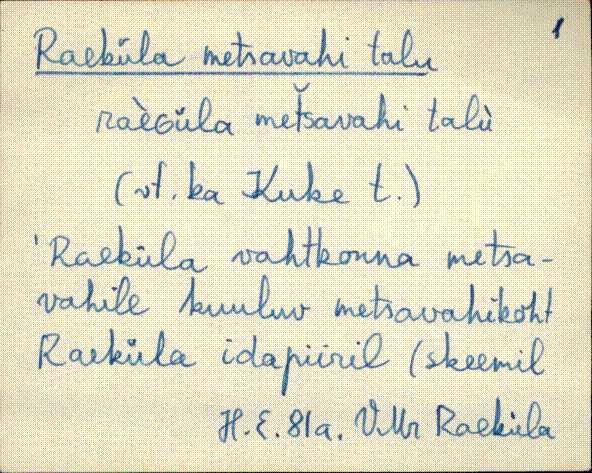 1
Raeküla metsavahi talu
raèGüla metšavahi talù
(vt. ka Kuke t.)
'Raeküla vahtkonna metsa-
vahile kuuluv metsavahikoht
Raeküla idapiiril (skeemil
H.E. 81a. V.Mr Raeküla